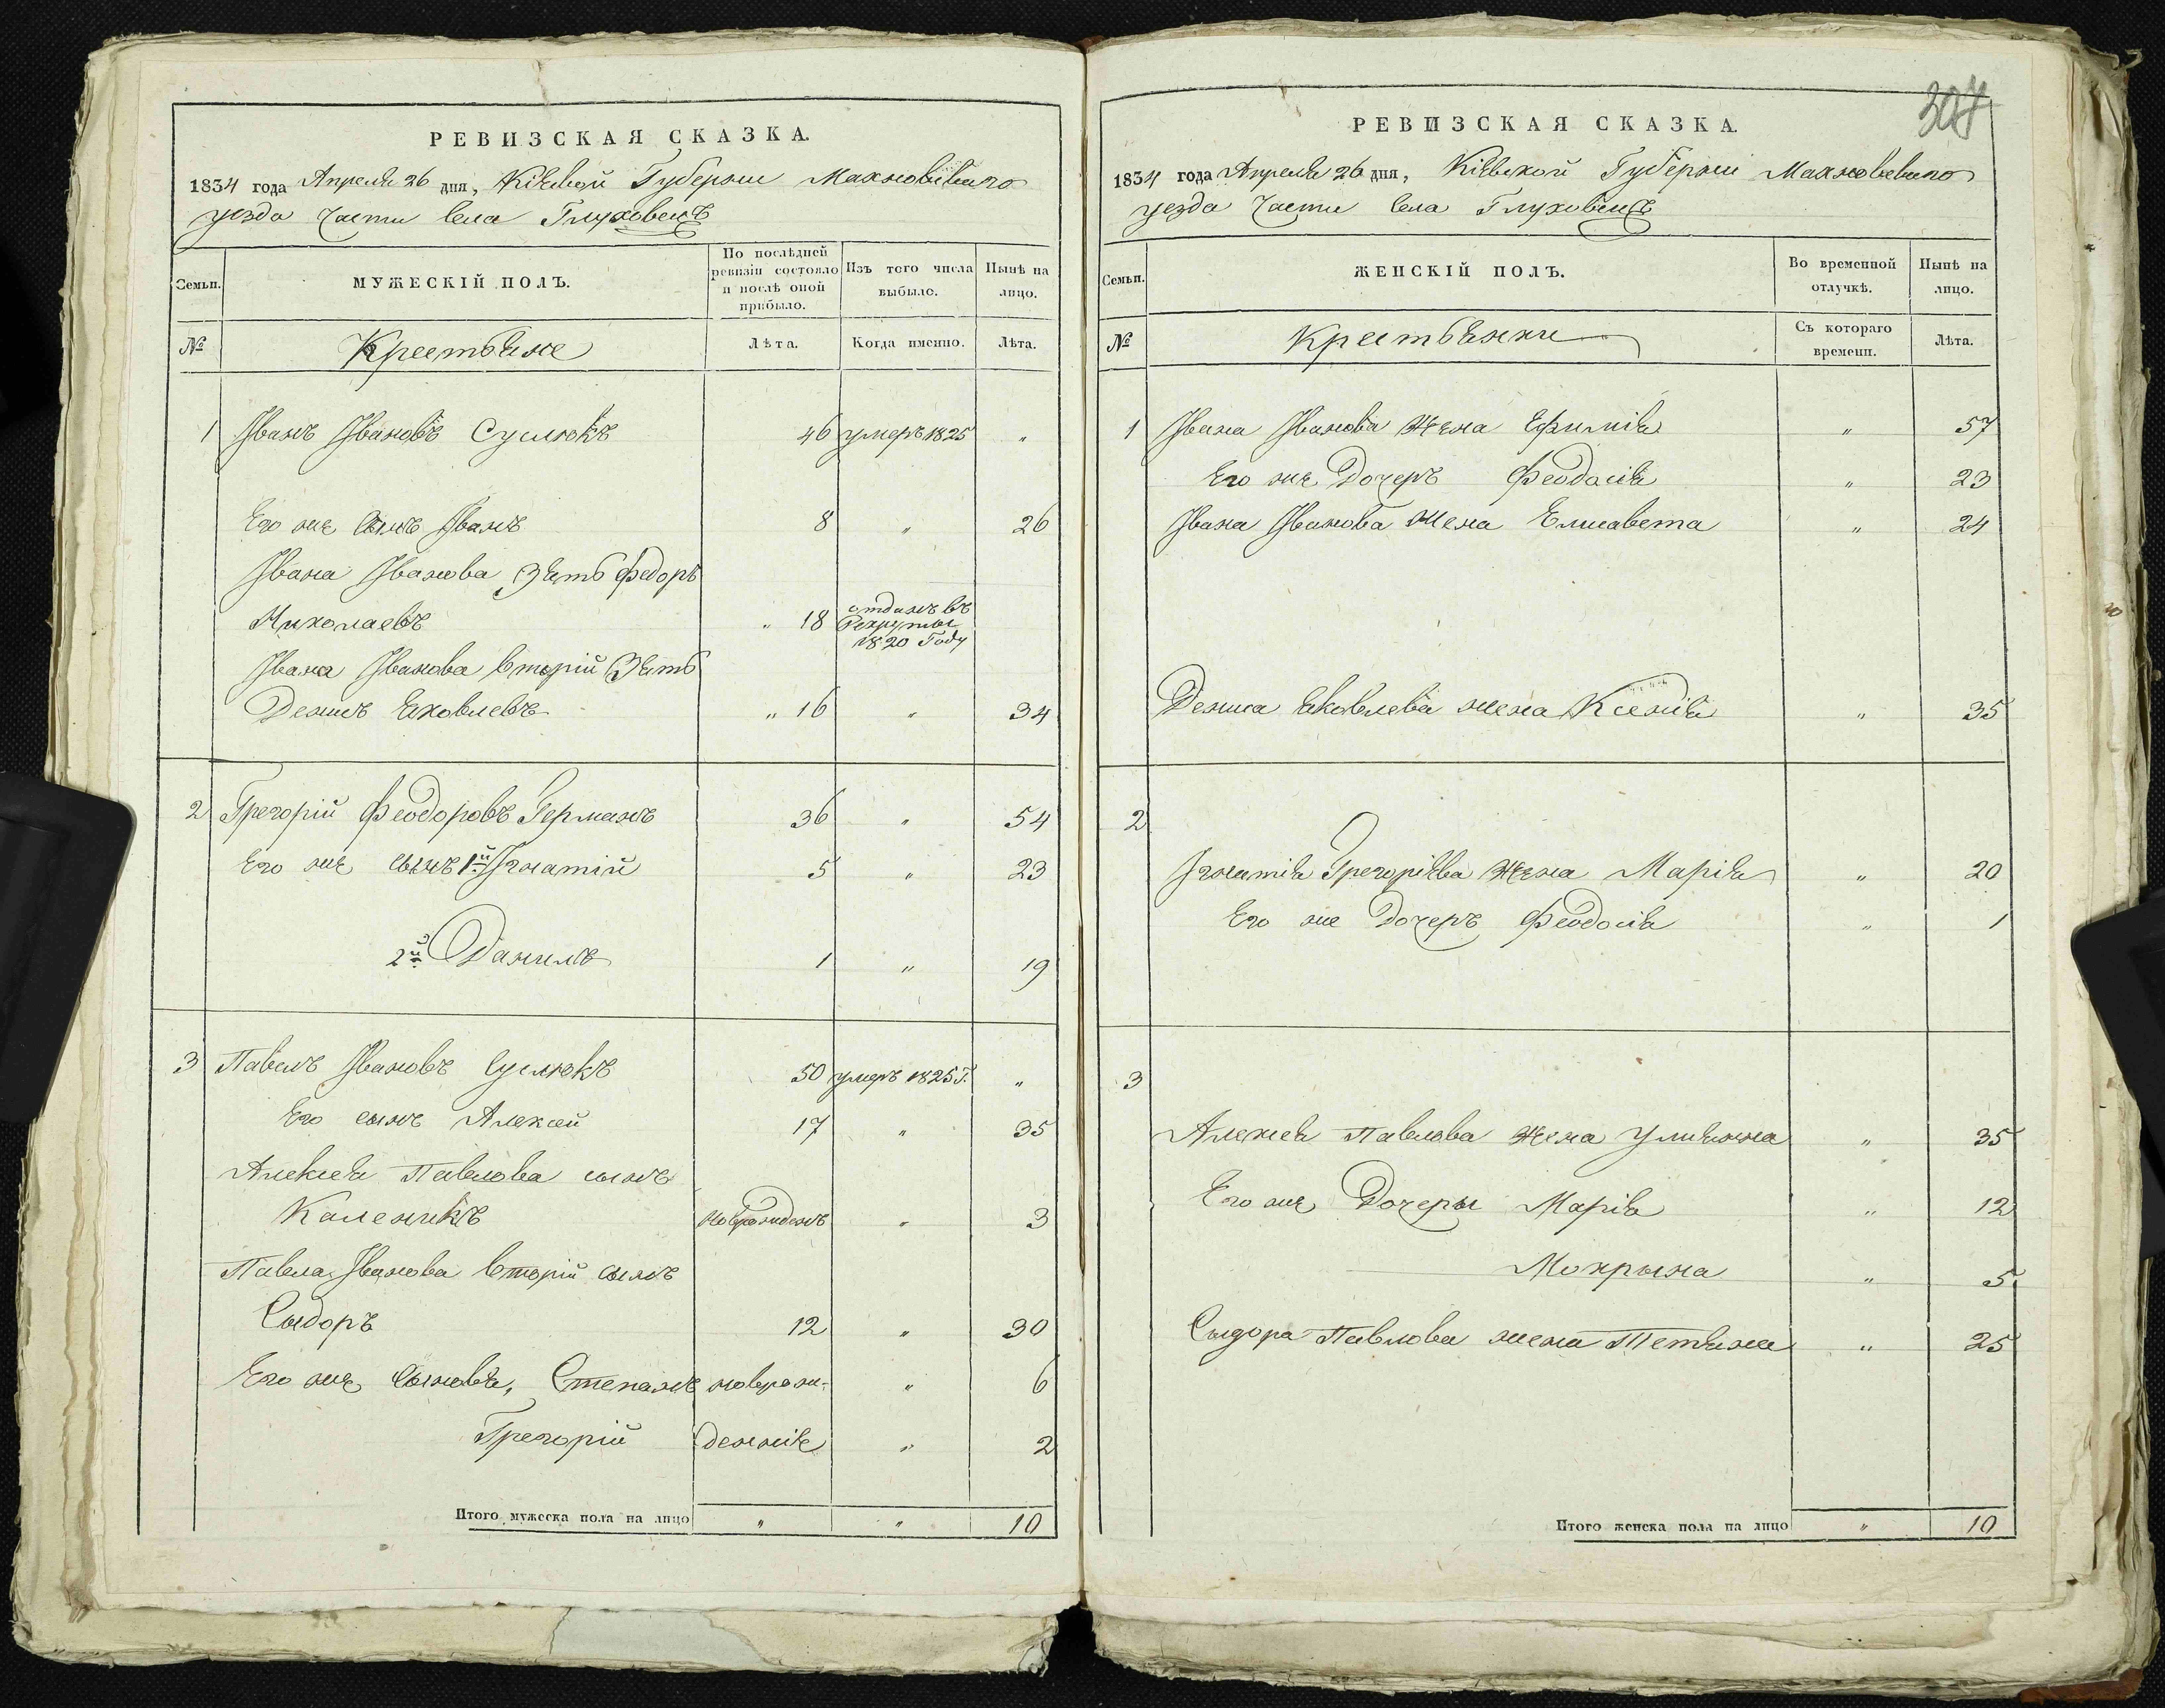 РЕВИЗСКАЯ СКАЗКА.
1834 года Апреля 26 дня, Кіевской Губерніи Махновскаго
уезда Части села Глуховецъ
Семьи. МУЖЕСКІЙ ПОЛЪ. По послѣдней ревизіи состояло и послѣ оной прибыло. Изъ того числа выбыло. Нынѣ на лицо.
№ Крестьяне Лѣта. Когда именно. Лѣта.
1 Іванъ Івановъ Суслюкъ 46 умеръ 1825 "
Его же сынъ Іванъ 8 " 26
Івана Іванова Зять Федоръ
Николаевъ " 18 отданъ въ Рекруты 1820 Году
Івана Іванова вторій Зять
Денисъ Яковлевъ " 16 " 34
2 Грегорій Феодоровъ Германъ 36 " 54
Его же сынъ 1й Ігнатій 5 " 23
2й Данилъ 1 " 19
3 Павелъ Івановъ Суслюкъ 50 умеръ 1825 Г. "
Его сынъ Алексей 17 " 35
Алексея Павлова сынъ
Каленикъ новрожденъ " 3
Павла Іванова вторій сынъ
Сыдоръ 12 " 30
Его же сыновя, Степанъ новрож- " 6
Грегорій деннie " 2
Итого мужеска пола на лицо " " 10
307
РЕВИЗСКАЯ СКАЗКА.
1834 года Апреля 26 дня, Кіевской Губерніи Махновскаго
уезда Части села Глуховецъ
Семьи. ЖЕНСКІЙ ПОЛЪ. Во временной отлучкѣ. Нынѣ на лицо.
№ Крестьянки Съ котораго времени. Лѣта.
1 Івана Іванова Жена Ефимія " 57
Его же Дочеръ Феодосія " 23
Івана Іванова Жена Елисавета " 24
Дениса Яковлева жена Ксенія " 35
2
Ігнатія Грегоріева Жена Марія " 20
Его же Дочеръ Феодосія " 1
3
Алексея Павлова Жена Улиянна " 35
Его же Дочеры Марія " 12
Мокрына " 5
Сыдора Павлова жена Тетяна " 25
Итого женска пола на лицо " 10